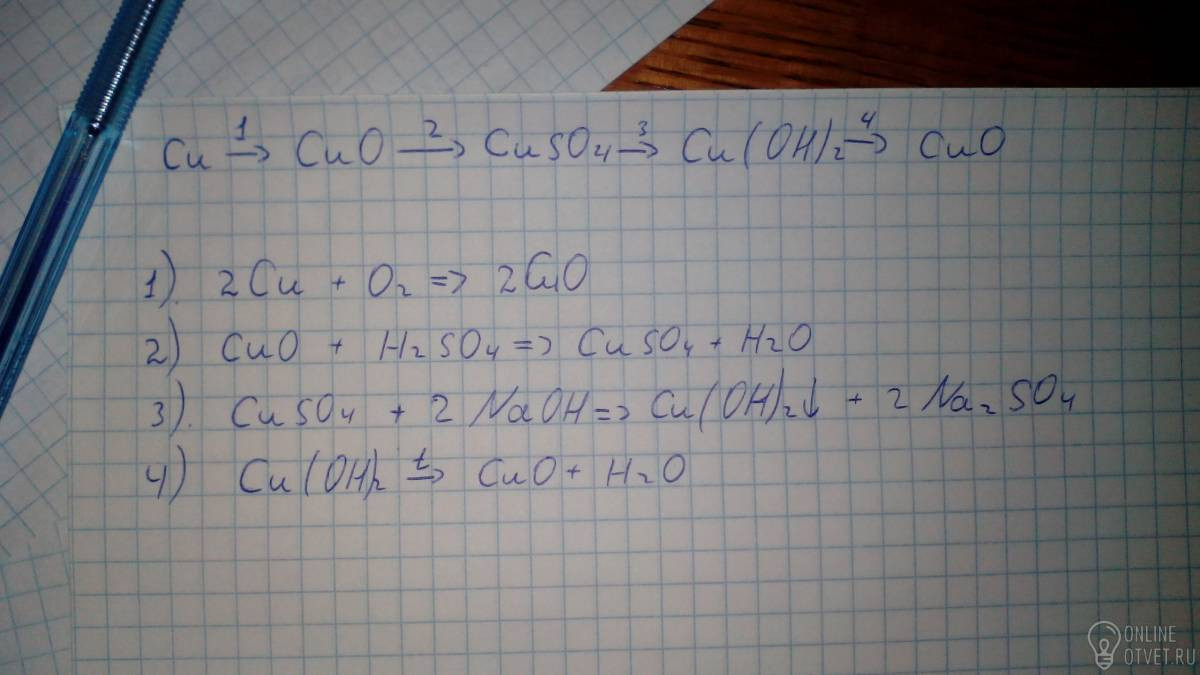 Cu →1 CuO →2 CuSO4 →3 Cu(OH)2 →4 CuO
1). 2Cu + O2 => 2CuO
2) CuO + H2SO4 => CuSO4 + H2O
3). CuSO4 + 2 NaOH => Cu(OH)2↓ + 2 Na2SO4
4) Cu(OH)2 →t CuO + H2O
ONLINE
OTVET.RU